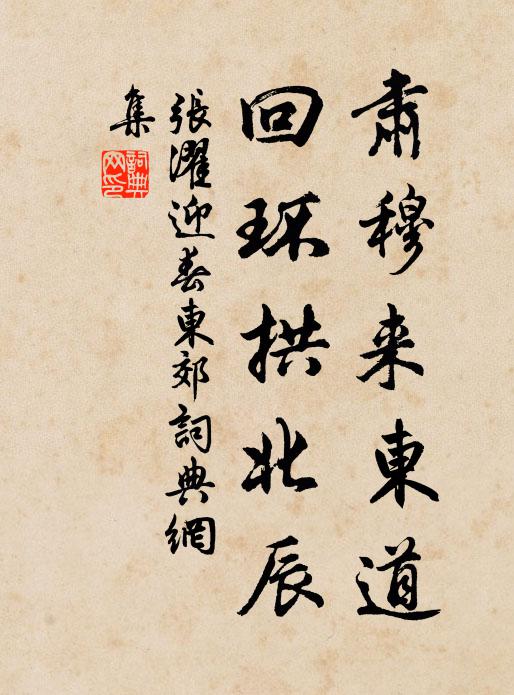 肅穆来東道
回环拱北辰
張濯迎春東郊詞典網
集
詞典
网印